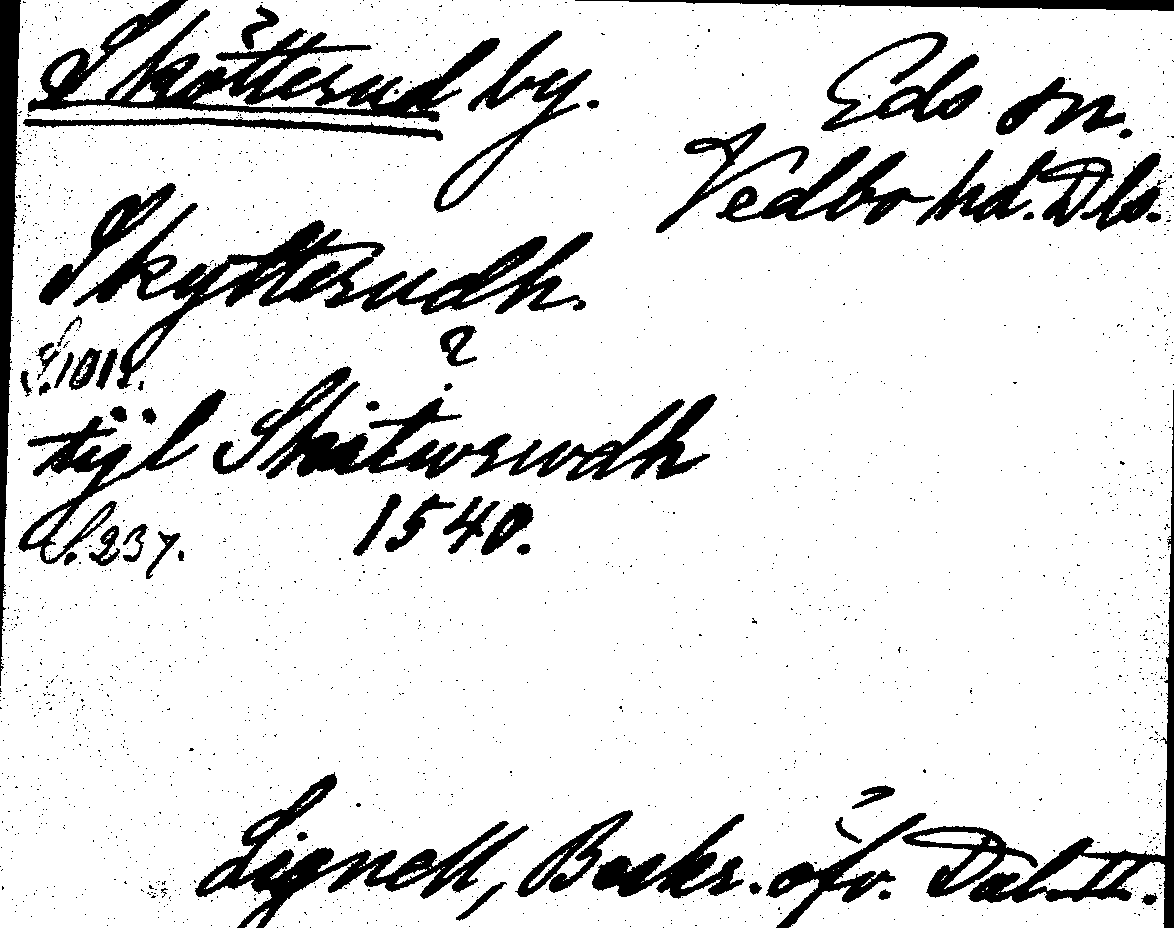 Skötterud by.
Eds sn.
Vedbo hd. Dls.
Skytterudh.
S. 101.
?
tijl Skøtwrwdh
1540.
S. 237.
Lignell, Beskr. öfv. Dal. II.